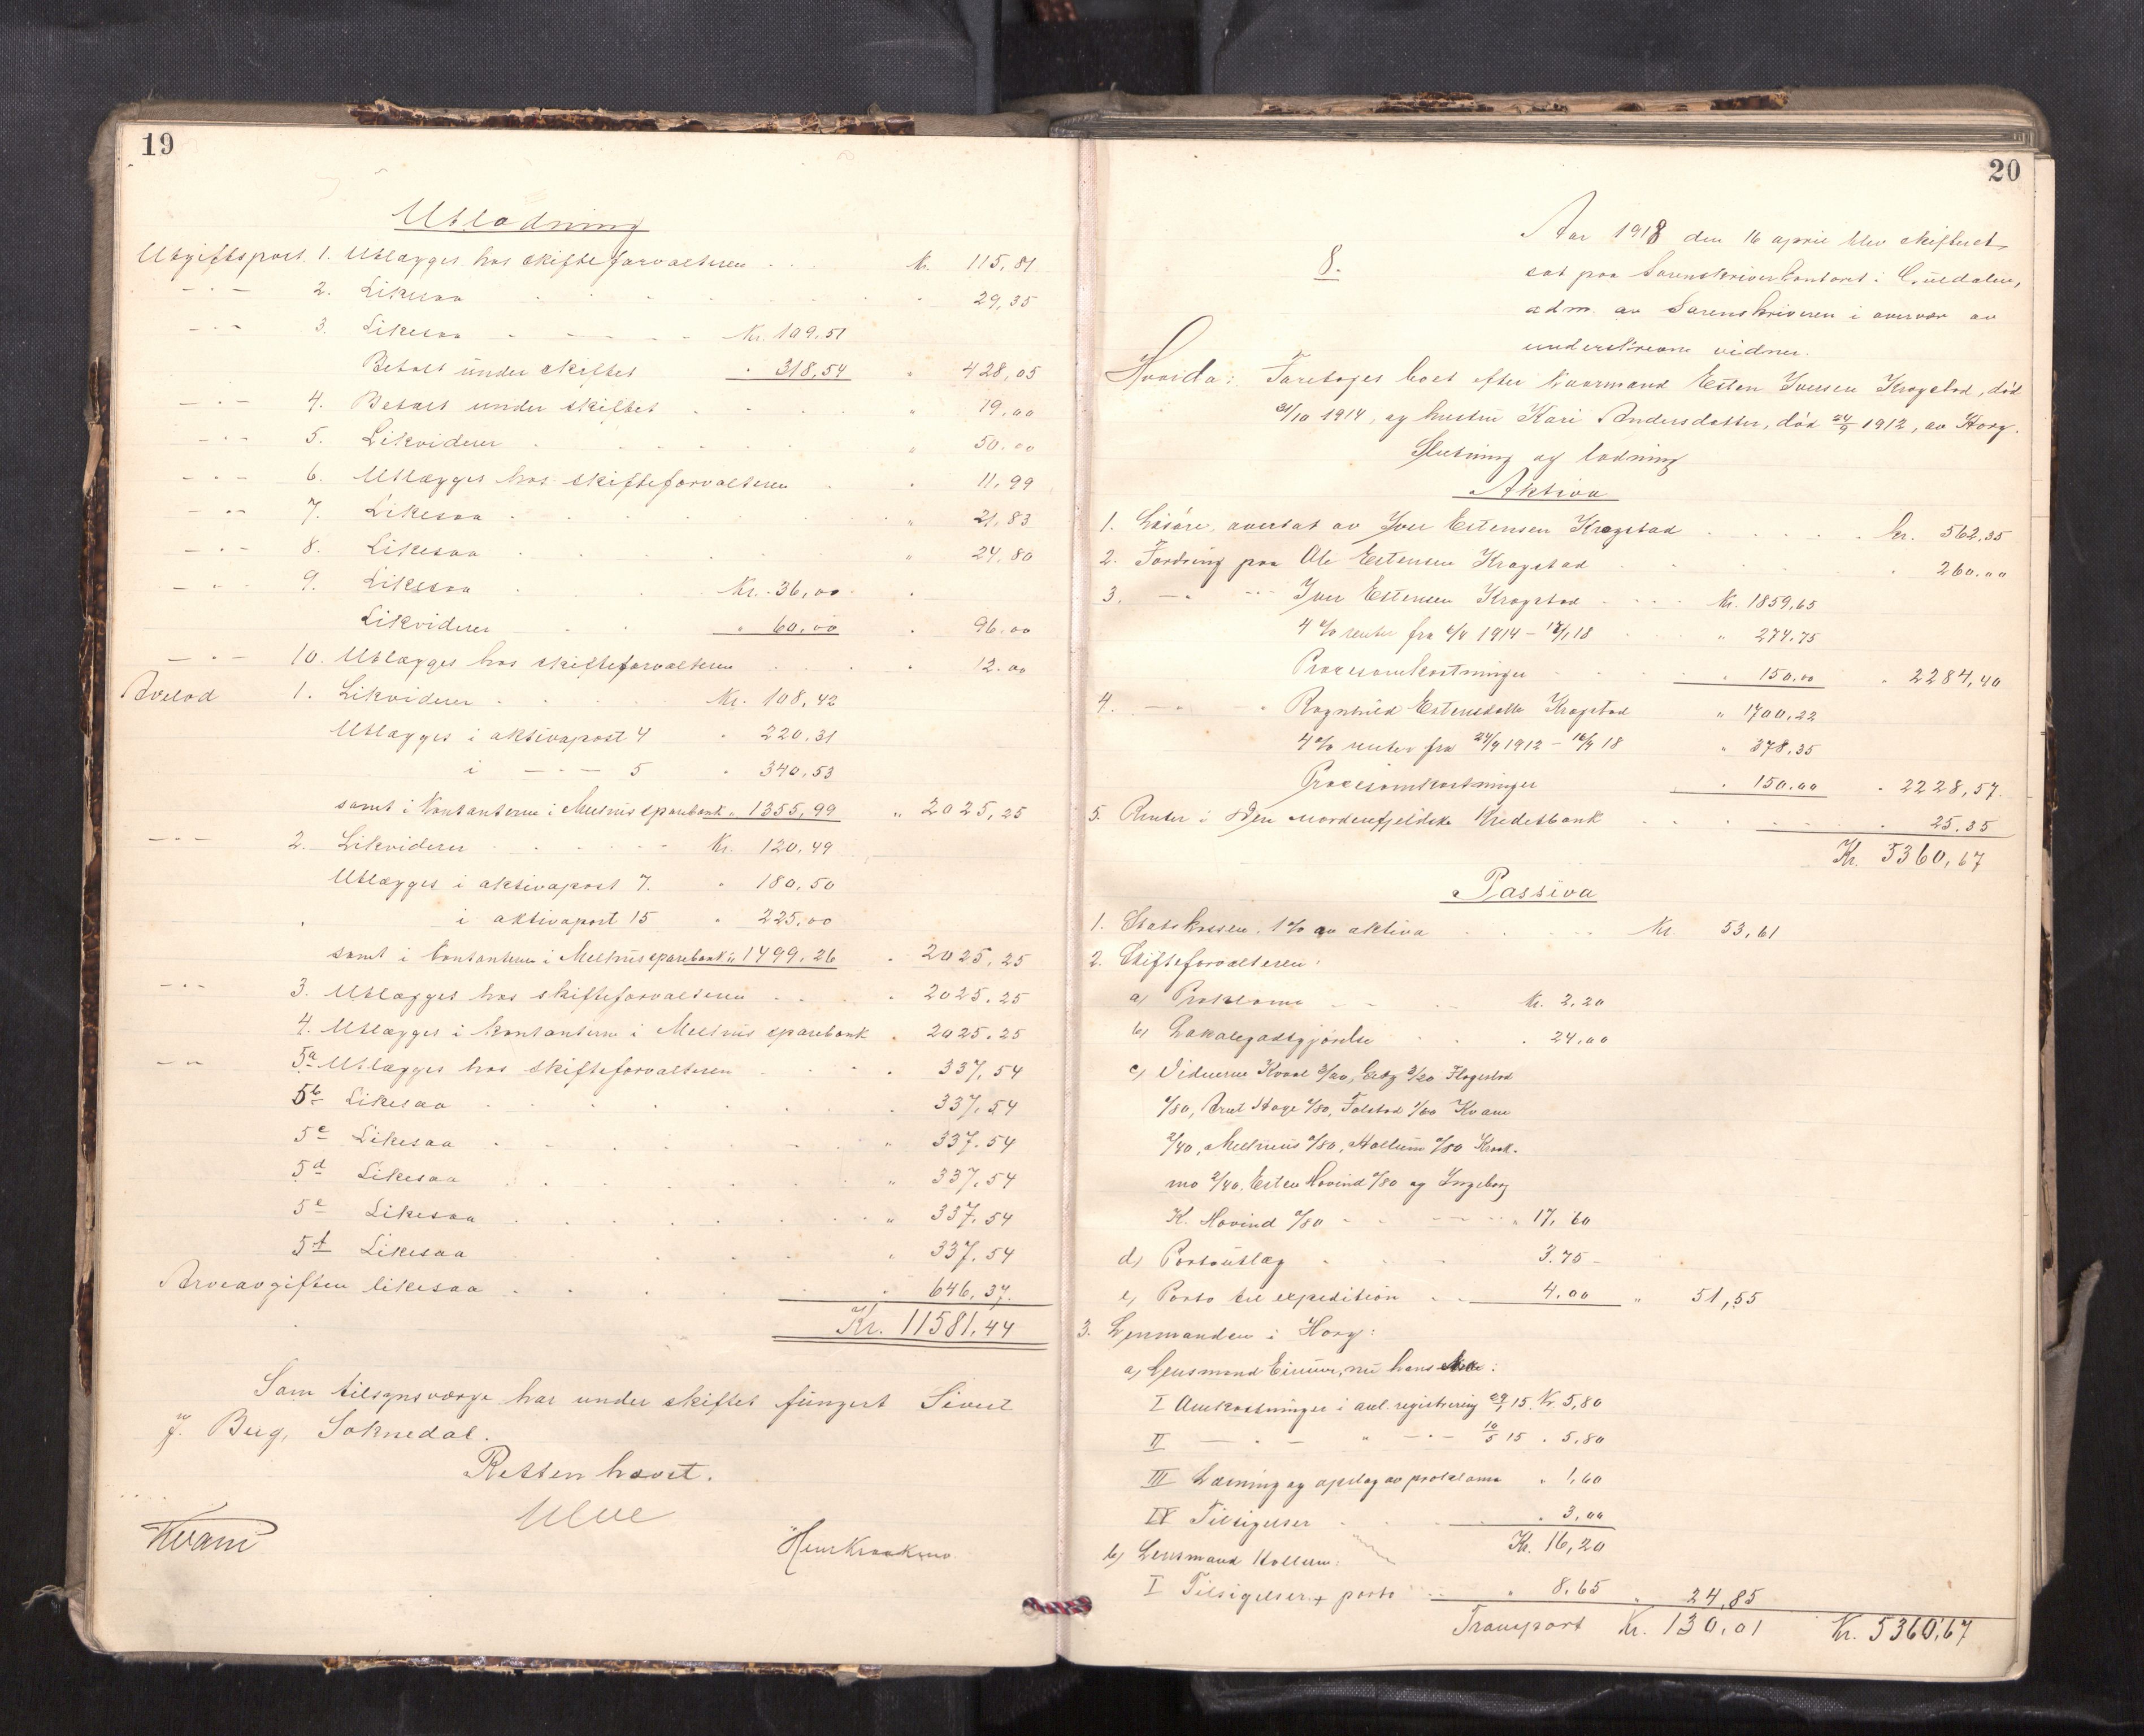 19
Utlodning
Utgiftspost 1. Utlægges hos skifteforvalteren . . . Kr. 115,81
— " — 2. Likesaa . . . . " 29,35
— " — 3. Likesaa . . . Kr. 109,51
Betalt under skiftet " 318,54 " 428,05
— " — 4. Betalt under skiftet . . . " 19,00
— " — 5. Likviderer . . . " 50.00
— " — 6. Utlægges hos skifteforvalteren . " 11,99
— " — 7. Likesaa . . . " 21,83
— " — 8. Likesaa . . . " 24,80
— " — 9. Likesaa . . . Kr. 36,00
Likviderer . . " 60,00 " 96.00
— " — 10. Utlægges hos skifteforvalteren . . . " 12.00
Arvelod 1. Likviderer . . . Kr. 108,42
Utlægges i aktivapost 4 " 220,31
i — " — 5 " 340,53
samt i kontanterne i Melhus sparebank " 1355,99 " 2025,25
— " — 2. Likviderer . . . Kr. 120,49
Utlægges i aktivapost 7. " 180,50
i aktivapost 15 " 225,00
samt i kontanterne i Melhus sparebank " 1499,26 " 2025,25
— " — 3. Utlægges hos skifteforvalteren . . . 2025.25
4. Utlægges i kontanterne i Melhus sparebank . 2025.25
— " — 5a Utlægges hos skifteforvalteren . . . 337,54
5b Likesaa . . . 337,54
5c Likesaa . . . " 337.54
5d Likesaa . . . " 337,54
5e Likesaa . . . " 337.54
5f Likesaa . . . " 337.54
Arveavgiften likesaa . . . " 646,37.
Kr. 11581,44
Som tilsynsværge har under skiftet fungert Sivert
J. Berg, Soknedal.
Retten hævet.
Ulve
Kvam
Henr Kraakmo
20
Aar 1918 den 16 april blev skifteret
8.
sat paa Sorenskriverkontoret i Guldalen,
adm. av Sorenskriveren i overvær av
underskrevne vidner.
Hvorda: Foretoges boet efter kaarmand Esten Iversen Krogstad, død
31/10 1914, og hustru Kari Andersdatter, død 24/9 1912, av Horg.
Slutning og lodning
Aktiva
1. Løsøre, overtat av Iver Estensen Krogstad . . . kr. 562,35
2. Fordring paa Ole Estensen Krogstad . . . " 260.00
3. — " — " Iver Estensen Krogstad . . . Kr. 1859,65
4 % renter fra 1914 – 18 . . " 274.75
Procesomkostninger . . " 150.00 " 2284,40
4. — " — " Ragnhild Estensdatter Krogstad " 1700,22
4 % renter fra 24/9 1912 – 16/4 18 " 378,35
Procesomkostninger " 150.00 " 2228,57.
5. Renter i Den nordenfjeldske Kreditbank . . . 25.35
Kr. 5360,67
Passiva
1. Statskassen, 1 % av aktiva . . . Kr. 53,61
2. Skifteforvalteren:
a) Proklama . . . Kr. 2,20
b) Lokalegodtgjørelse . . . 24,00
c) Vidnerne Kvaal 3/20, Berg 3/20 Flagestad
/80, Arnt Hage /80, Folstad 1/60 Kvam
2/40, Melhuus /80, Hollum /80 Kraak-
mo 2/40, Esten Hovind /80 og Ingeborg
K. Hovind /80 . . . " 17,60
d) Portoutlæg . . . 3.75
e) Porto til expedition . . 4,00 " 51,55
3. Lensmanden i Horg:
a) Lensmand Einum, nu hans :
I Omkostninger i anl. registrering 15. Kr 5,80
II — " — " — " — 10/5 15 . 5.80
III Læsning og opslag av proklama " 1,60
IV Tilsigelser . . . " 3,00
Kr. 16,20
b) Lensmand Hollum:
I Tilsigelser + porto . . . " 8,65 " 24,85
Transport Kr. 130,01 Kr. 5360,67